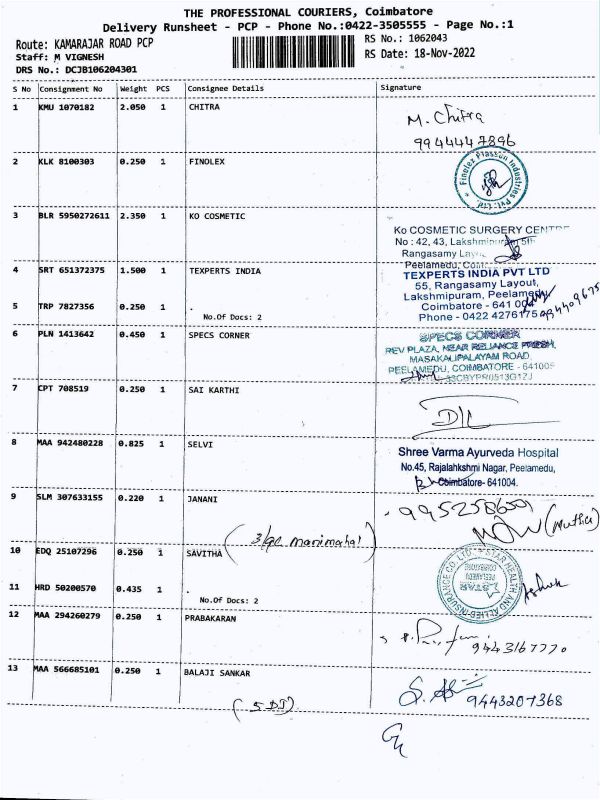 THE PROFESSIONAL COURIERS, Coimbatore
Delivery Runsheet - PCP - Phone No.:0422-3505555 - Page No.:1
Route: KAMARAJAR ROAD PCP
RS No.: 1062043
Staff: M VIGNESH
RS Date: 18-Nov-2022
DRS No.: DCJB106204301
S No Consignment No Weight PCS Consignee Details Signature
1 KMU 1070182 2.050 1 CHITRA
M. Chitra
9944447896
2 KLK 8100303 0.250 1 FINOLEX
Finolex Plasson Industries Pvt. Ltd.
3 BLR 5950272611 2.350 1 KO COSMETIC
Ko COSMETIC SURGERY CENTRE
No : 42, 43, Lakshmipuram 5th
Rangasamy
Peelamedu,
4 SRT 651372375 1.500 1 TEXPERTS INDIA
TEXPERTS INDIA PVT LTD
55, Rangasamy Layout,
Lakshmipuram, Peelamedu,
Coimbatore - 641 004
Phone - 0422 4276175
5 TRP 7827356 0.250 1 .
No.Of Docs: 2
6 PLN 1413642 0.450 1 SPECS CORNER
SPECS CORNER
REV PLAZA, NEAR RELIANCE FRESH,
MASAKALIPALAYAM ROAD
PEELAMEDU, COIMBATORE - 641005
7 CPT 708519 0.250 1 SAI KARTHI
8 MAA 942480228 0.825 1 SELVI
Shree Varma Ayurveda Hospital
No.45, Rajalahkshmi Nagar, Peelamedu,
Coimbatore- 641004.
9 SLM 307633155 0.220 1 JANANI
10 EDQ 25107296 0.250 1 SAVITHA
STAR HEALTH AND ALLIED INSURANCE CO. LTD.
STAR
PEELAMEDU
COIMBATORE
11 HRD 50200570 0.435 1 .
No.Of Docs: 2
12 MAA 294260279 0.250 1 PRABAKARAN
9443167770
13 MAA 566685101 0.250 1 BALAJI SANKAR
9443207368